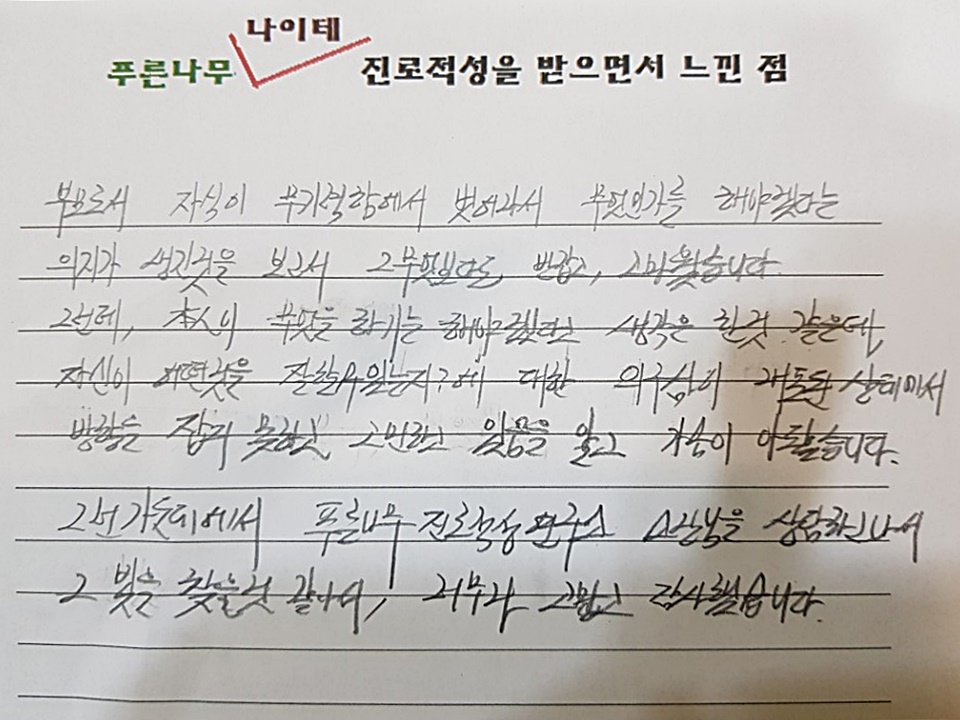 나이테
푸른나무 진로적성을 받으면서 느낀 점
부모로서 자식이 무기력함에서 벗어나서 무엇인가를 해야겠다는
의지가 생긴것을 보고서 그무엇보다도 반갑고, 고마웠습니다.
그런데, 本人이 무엇을 하기는 해야겠다고 생각은 한것 같은데,
자신이 어떤것을 잘할수있는지?에 대한 의구심이 상태에서
방향을 잡지 못하고 고민하고 있음을 알고 가슴이 아팠습니다.
그런가운데에서 푸른나무 진로적성연구소 상담하고나서
그 빛을 찾을것 같아서, 너무나 고맙고 감사했습니다.